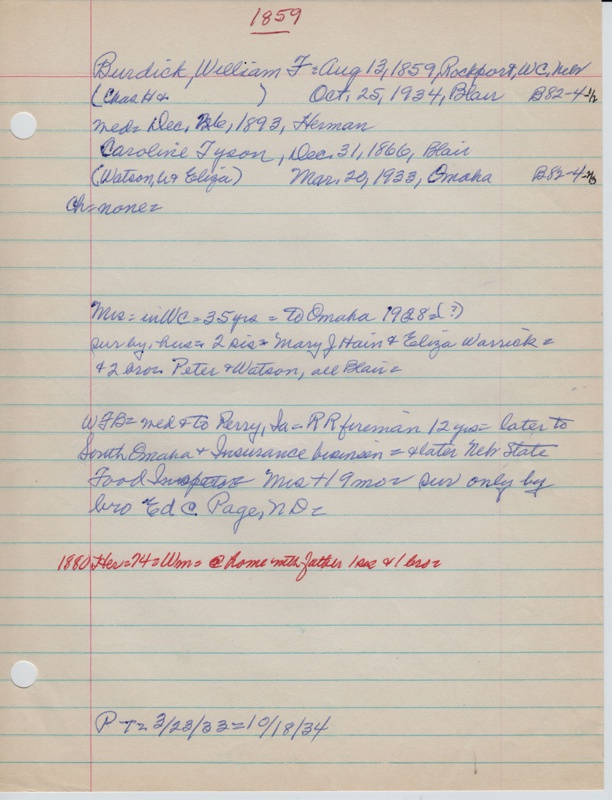 1859
Burdick, William F = Aug 13, 1859, Rockport, WC, Nebr
(Chas H & ) Oct. 25, 1934, Blair B82-4-1/2
med = Dec. 26, 1893, Herman
Caroline Tyson, Dec. 31, 1866, Blair
(Watson, W & Eliza) Mar. 20, 1933, Omaha B82-4-
Ch = none =
Mrs = in WC = 35 yrs = to Omaha 1928 = (?)
sur by, hus = 2 sis = Mary J Hain & Eliza Warrick =
& 2 bro = Peter & Watson, all Blair =
WFB = med & to Perry, Ia = RR fireman 12 yrs = later to
South Omaha & Insurance business = & later Nebr State
Food Inspector Mrs + 19 mo = sur only by
bro Ed C. Page, ND =
1880 Her = 74 = Wm = @ home with father 1 sis & 1 bro =
P-T = 3/23/33 = 10/18/34